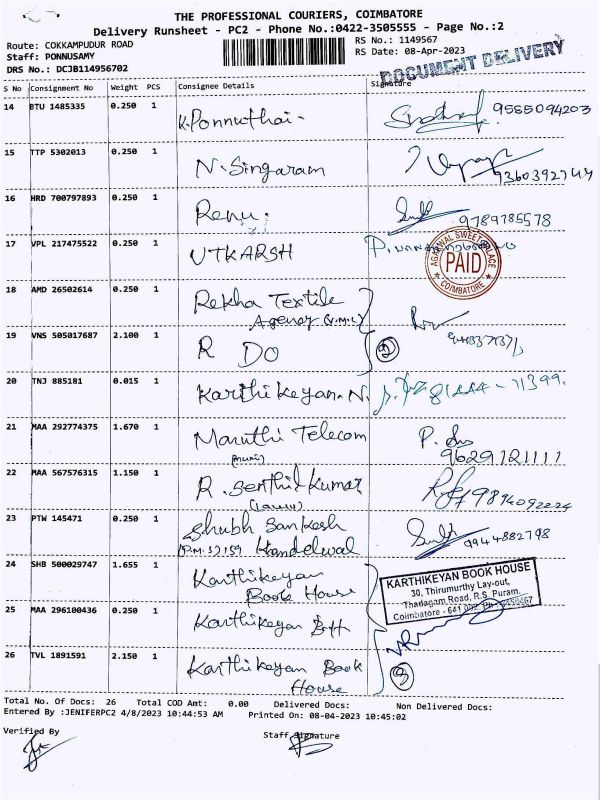 THE PROFESSIONAL COURIERS, COIMBATORE
Delivery Runsheet - PC2 - Phone No.:0422-3505555 - Page No.:2
Route: COKKAMPUDUR ROAD
RS No.: 1149567
Staff: PONNUSAMY
RS Date: 08-Apr-2023
DRS No.: DCJB114956702
DOCUMENT DELIVERY
S No Consignment No Weight PCS Consignee Details Signature
14 BTU 1485335 0.250 1 K.Ponnuthai- 9585094203
15 TTP 5302013 0.250 1 N.Singaram 9360392744
16 HRD 700797893 0.250 1 Renu. 9789785578
17 VPL 217475522 0.250 1 UTKARSH
AGARWAL SWEET PALACE
PAID
COIMBATORE
18 AMD 26502614 0.250 1 Rekha Textile
Agency (V.M.L)
19 VNS 505017687 2.100 1 R DO ②
20 TNJ 885181 0.015 1 Karthikeyan.N. 81444-71399.
21 MAA 292774375 1.670 1 Maruthi Telecom
9629121111
22 MAA 567576315 1.150 1 R. Senthil Kumar
23 PTW 145471 0.250 1 Shubh Sankesh
(P.M.S) 159 Khandelwal 9944882798
24 SHB 500029747 1.655 1 Karthikeyan
Book House
KARTHIKEYAN BOOK HOUSE
30, Thirumurthy Lay-out,
Thadagam Road, R.S. Puram,
Coimbatore - 641 002.
25 MAA 296100436 0.250 1 Karthikeyan BH
26 TVL 1891591 2.150 1 Karthikeyan Book
House ③
Total No. Of Docs: 26 Total COD Amt: 0.00 Delivered Docs: Non Delivered Docs:
Entered By :JENIFERPC2 4/8/2023 10:44:53 AM Printed On: 08-04-2023 10:45:02
Verified By
Staff Signature